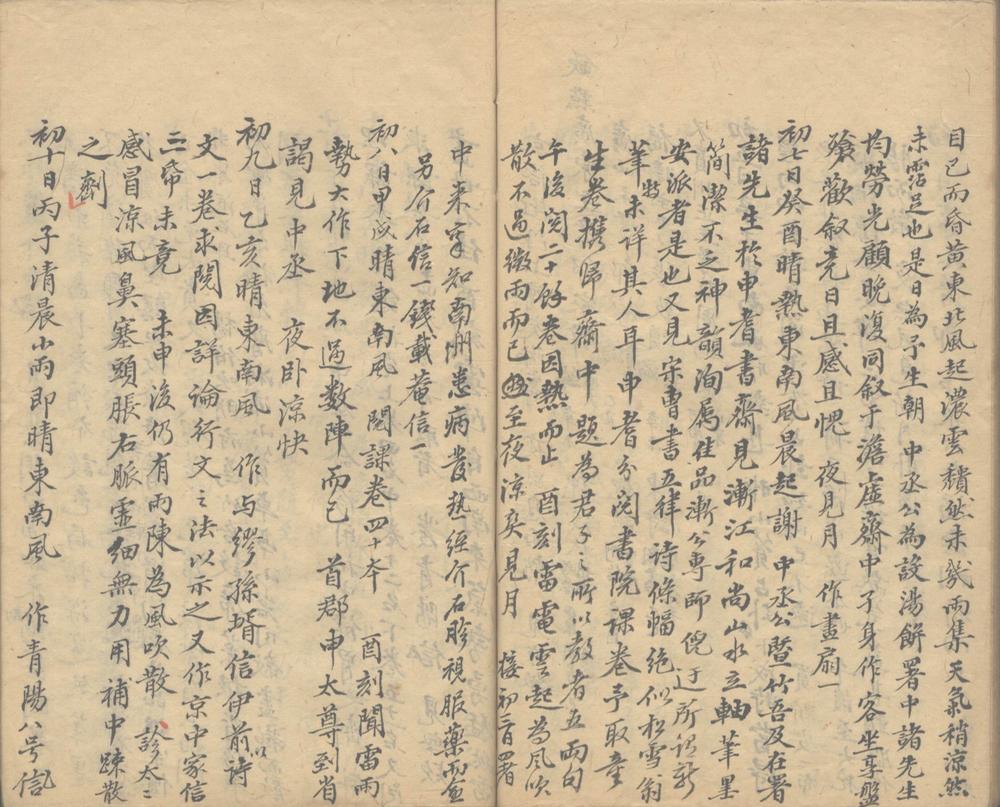 目已而昏黃東北風起濃雲靉然未幾雨集天氣稍涼然
未霑足也是日為予生朝 中丞公為設湯餅署中諸先生
均勞光顧晚復同叙于澹虛齋中孑身作客坐享盤
飧歡叙竟日且感且愧 夜見月 作畫扇一
初七日癸酉晴熱東南風晨起謝 中丞公暨竹吾及在署
諸先生於申耆書齋見漸江和尚山水立軸 筆墨
簡潔不乏神韻洵屬佳品漸公專師倪迂所謂新
安派者是也又見宋曹書五律詩條幅絕似松雪翁
筆特未詳其人耳 申耆分閱書院課卷予取童
生卷攜歸齋中 題為君子之所以教者五兩句
午後閱二十餘卷因熱而止 酉刻雷電雲起為風吹
散不過微雨而已 至夜涼爽見月 接初二日署
中來字知南洲患病發熱經介石診視服藥而愈
另介石信一錢載菴信一
初八日甲戌晴東南風 閱課卷四十本 酉刻聞雷雨
勢大作下地不過數陣而已 首郡申太尊到省
謁見中丞 夜卧涼快
初九日乙亥晴東南風 作与繆孫壻信伊前以詩
文一卷求閱因詳論行文之法以示之又作京中家信
三帋未竟 未申後仍有雨陳為風吹散 診太太
感冒涼風鼻塞頭脹右脈虛細無力用補中疎散
之劑
初十日丙子清晨小雨即晴東南風 作青陽八号信